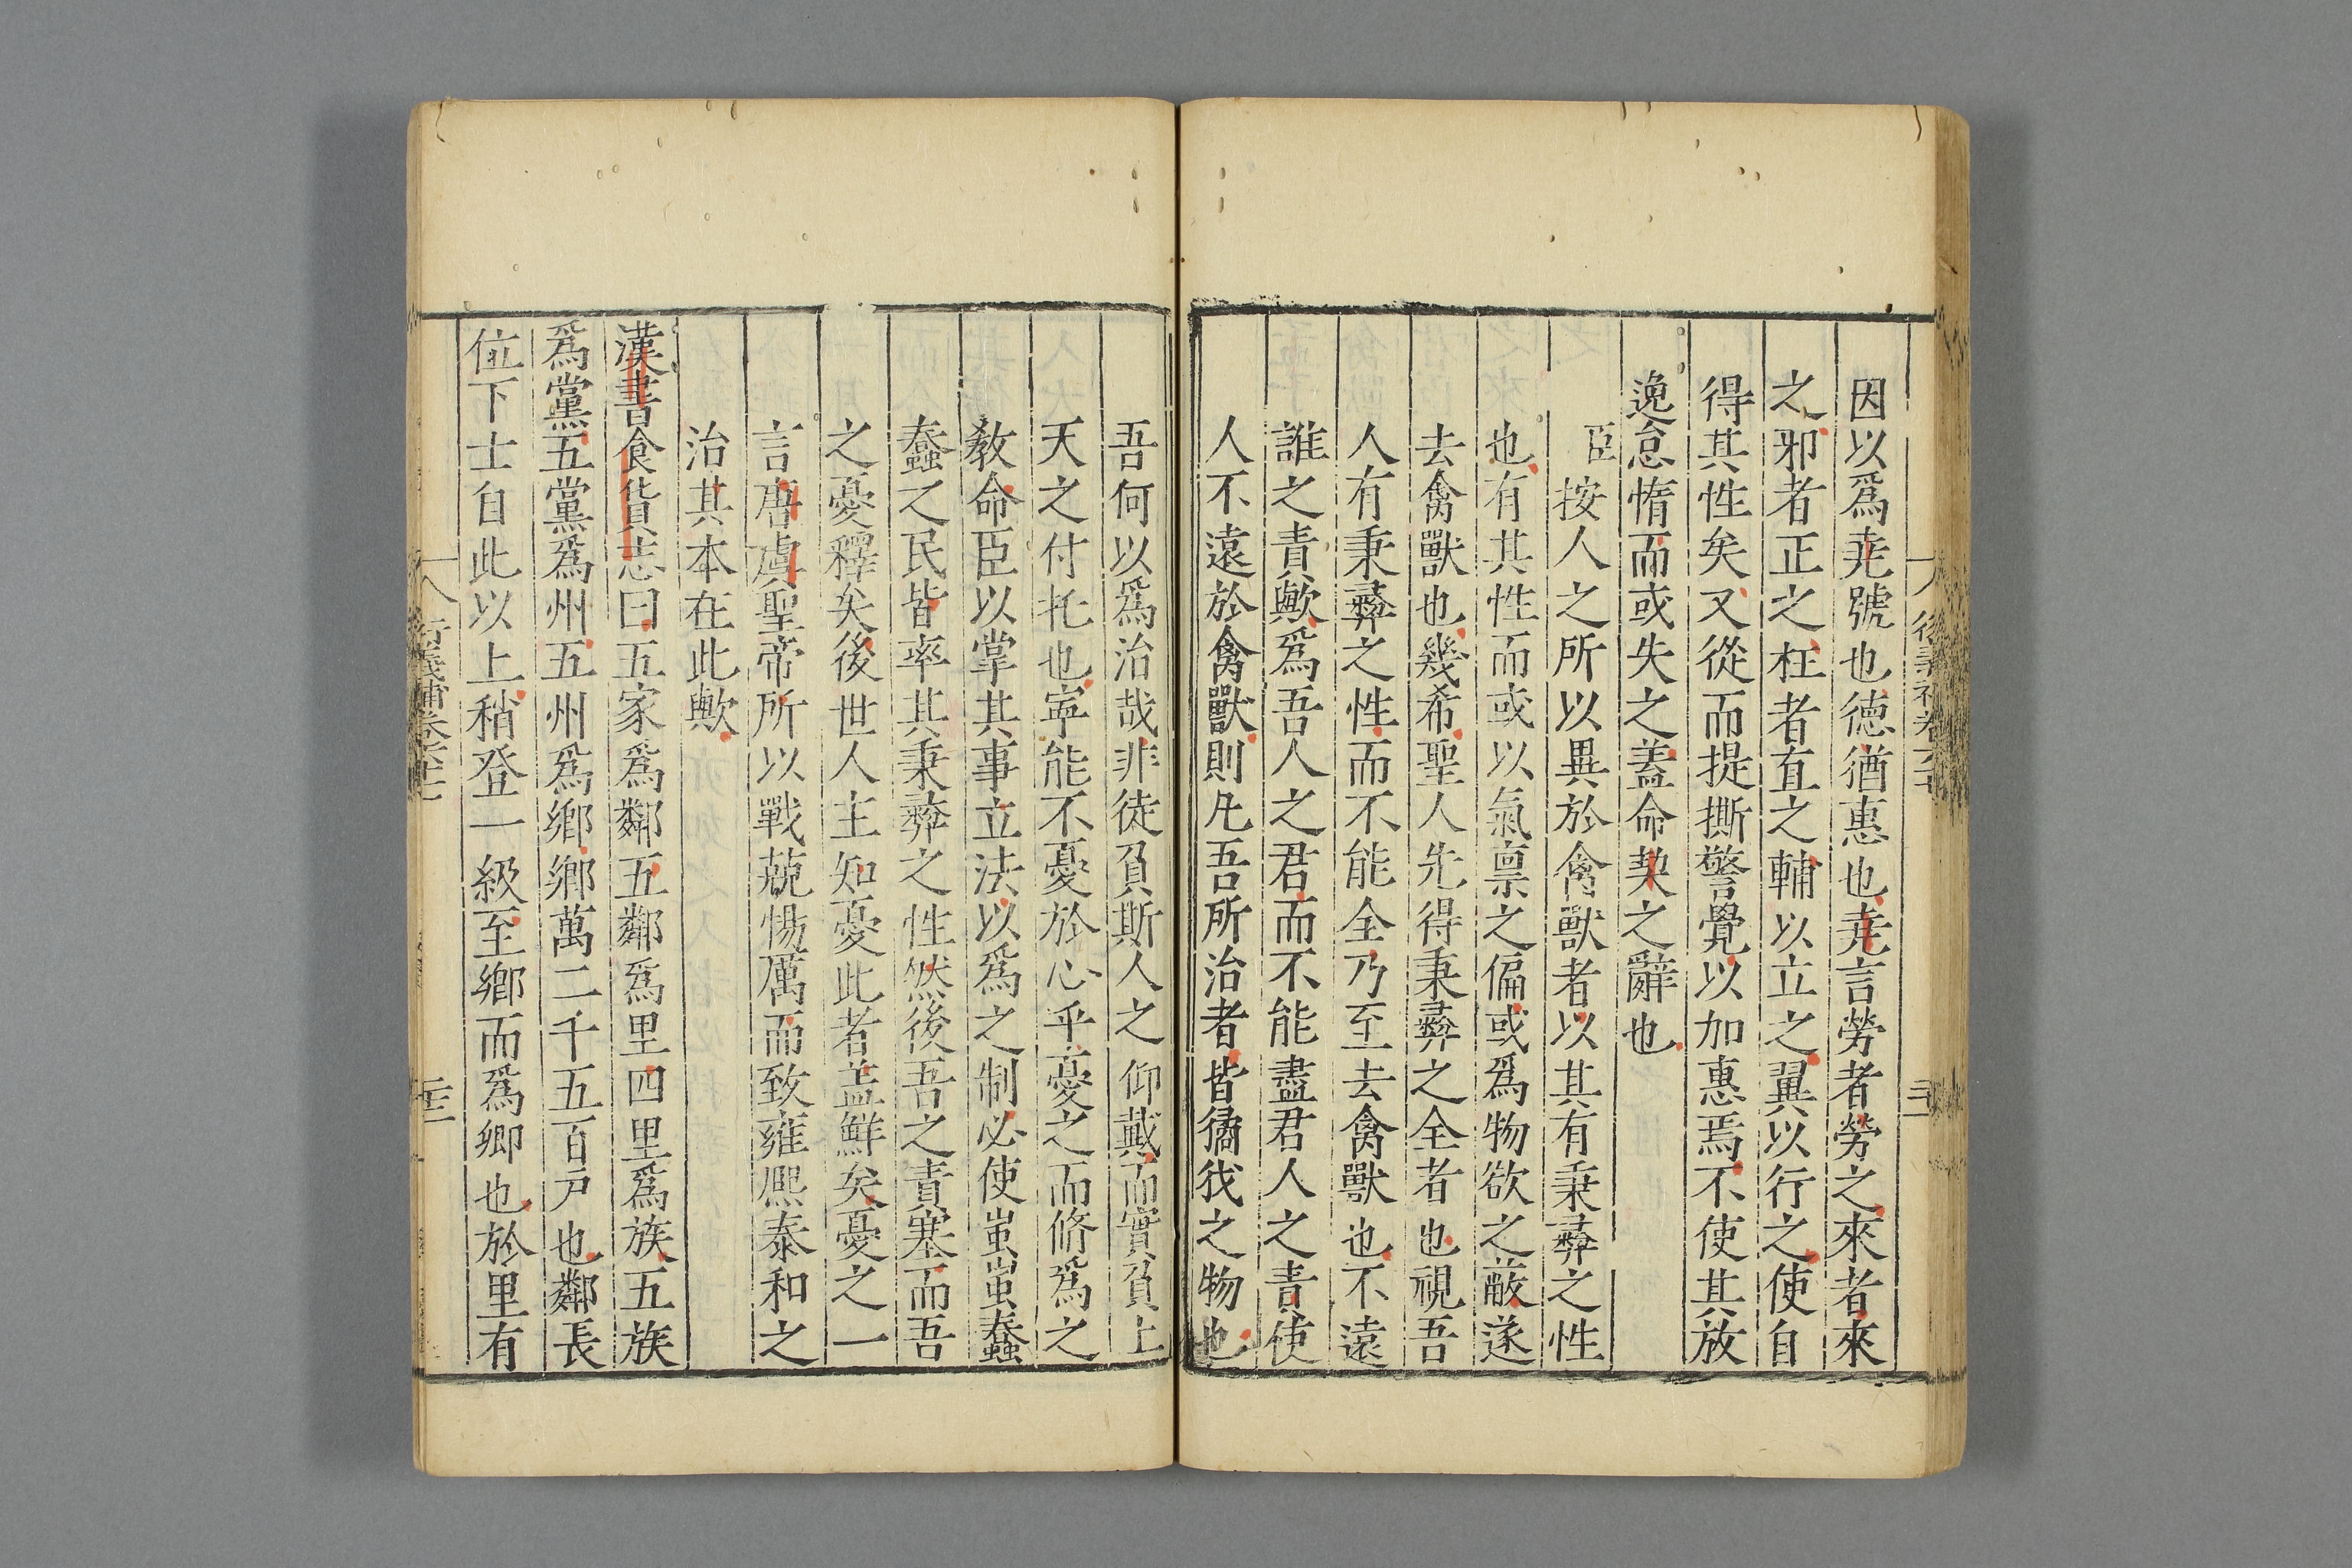 因以爲堯號也德猶惠也堯言勞者勞之來者來
之邪者正之枉者直之輔以立之翼以行之使自
得其性矣又從而提撕警覺以加惠焉不使其放
逸怠惰而或失之蓋命契之辭也
臣按人之所以異於禽獸者以其有秉彝之性
也有其性而或以氣禀之偏或爲物欲之蔽遂
去禽獸也幾希聖人先得秉彝之全者也視吾
人有秉彝之性而不能全乃至去禽獸也不遠
誰之責歟爲吾人之君而不能盡君人之責使
人不遠於禽獸則凡吾所治者皆獝狘之物也
吾何以爲治哉非徒負斯人之仰戴而實負上
天之付托也寧能不憂於心乎憂之而脩爲之
敎命臣以掌其事立法以爲之制必使蚩蚩蠢
蠢之民皆率其秉彝之性然後吾之責塞而吾
之憂釋矣後世人主知憂此者盖鮮矣憂之一
言唐虞聖帝所以戰兢惕厲而致雍熈泰和之
治其本在此歟
漢書食貨志曰五家爲鄰五鄰爲里四里爲族五族
爲黨五黨爲州五州爲鄉鄉萬二千五百戸也鄰長
位下士自此以上稍登一級至鄉而爲卿也於里有